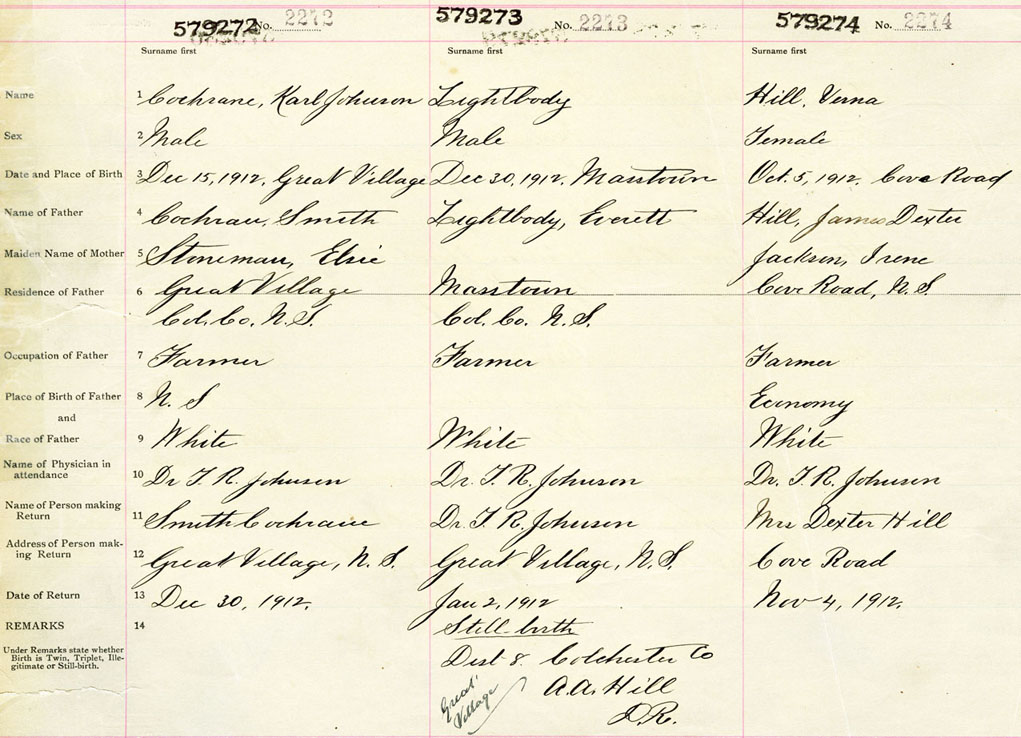 579272 No. 2272
579273 No. 2273
579274 No. 2274
Surname first Surname first Surname first
Name 1 Cochrane, Karl Johnson Lightbody Hill, Verna
Sex 2 Male Male Female
Date and Place of Birth 3 Dec 15, 1912, Great Village Dec 30, 1912, Masstown Oct. 5, 1912, Cove Road
Name of Father 4 Cochran, Smith Lightbody, Everett Hill, James Dexter
Maiden Name of Mother 5 Stoneman, Elsie Jackson, Irene
Residence of Father 6 Great Village Masstown Cove Road, N.S.
Col. Co. N.S. Col. Co. N.S.
Occupation of Father 7 Farmer Farmer Farmer
Place of Birth of Father 8 N. S Economy
and
Race of Father 9 White White White
Name of Physician in
attendance 10 Dr T. R. Johnson Dr. T. R. Johnson Dr. T. R. Johnson
Name of Person making
Return 11 Smith Cochrane Dr. T. R. Johnson Mrs Dexter Hill
Address of Person mak-
ing Return 12 Great Village, N. S. Great Village, N. S. Cove Road
Date of Return 13 Dec 30, 1912. Jan 2, 1912 Nov 4, 1912.
REMARKS 14 Still-birth
Under Remarks state whether
Birth is Twin, Triplet, Ille-
gitimate or Still-birth.
Dist 8. Colchester Co
Great Village
A. A. Hill
D.R.